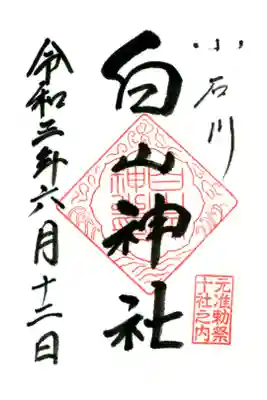 小石川
白山神社
元准勅祭
十社之内
令和三年六月十二日